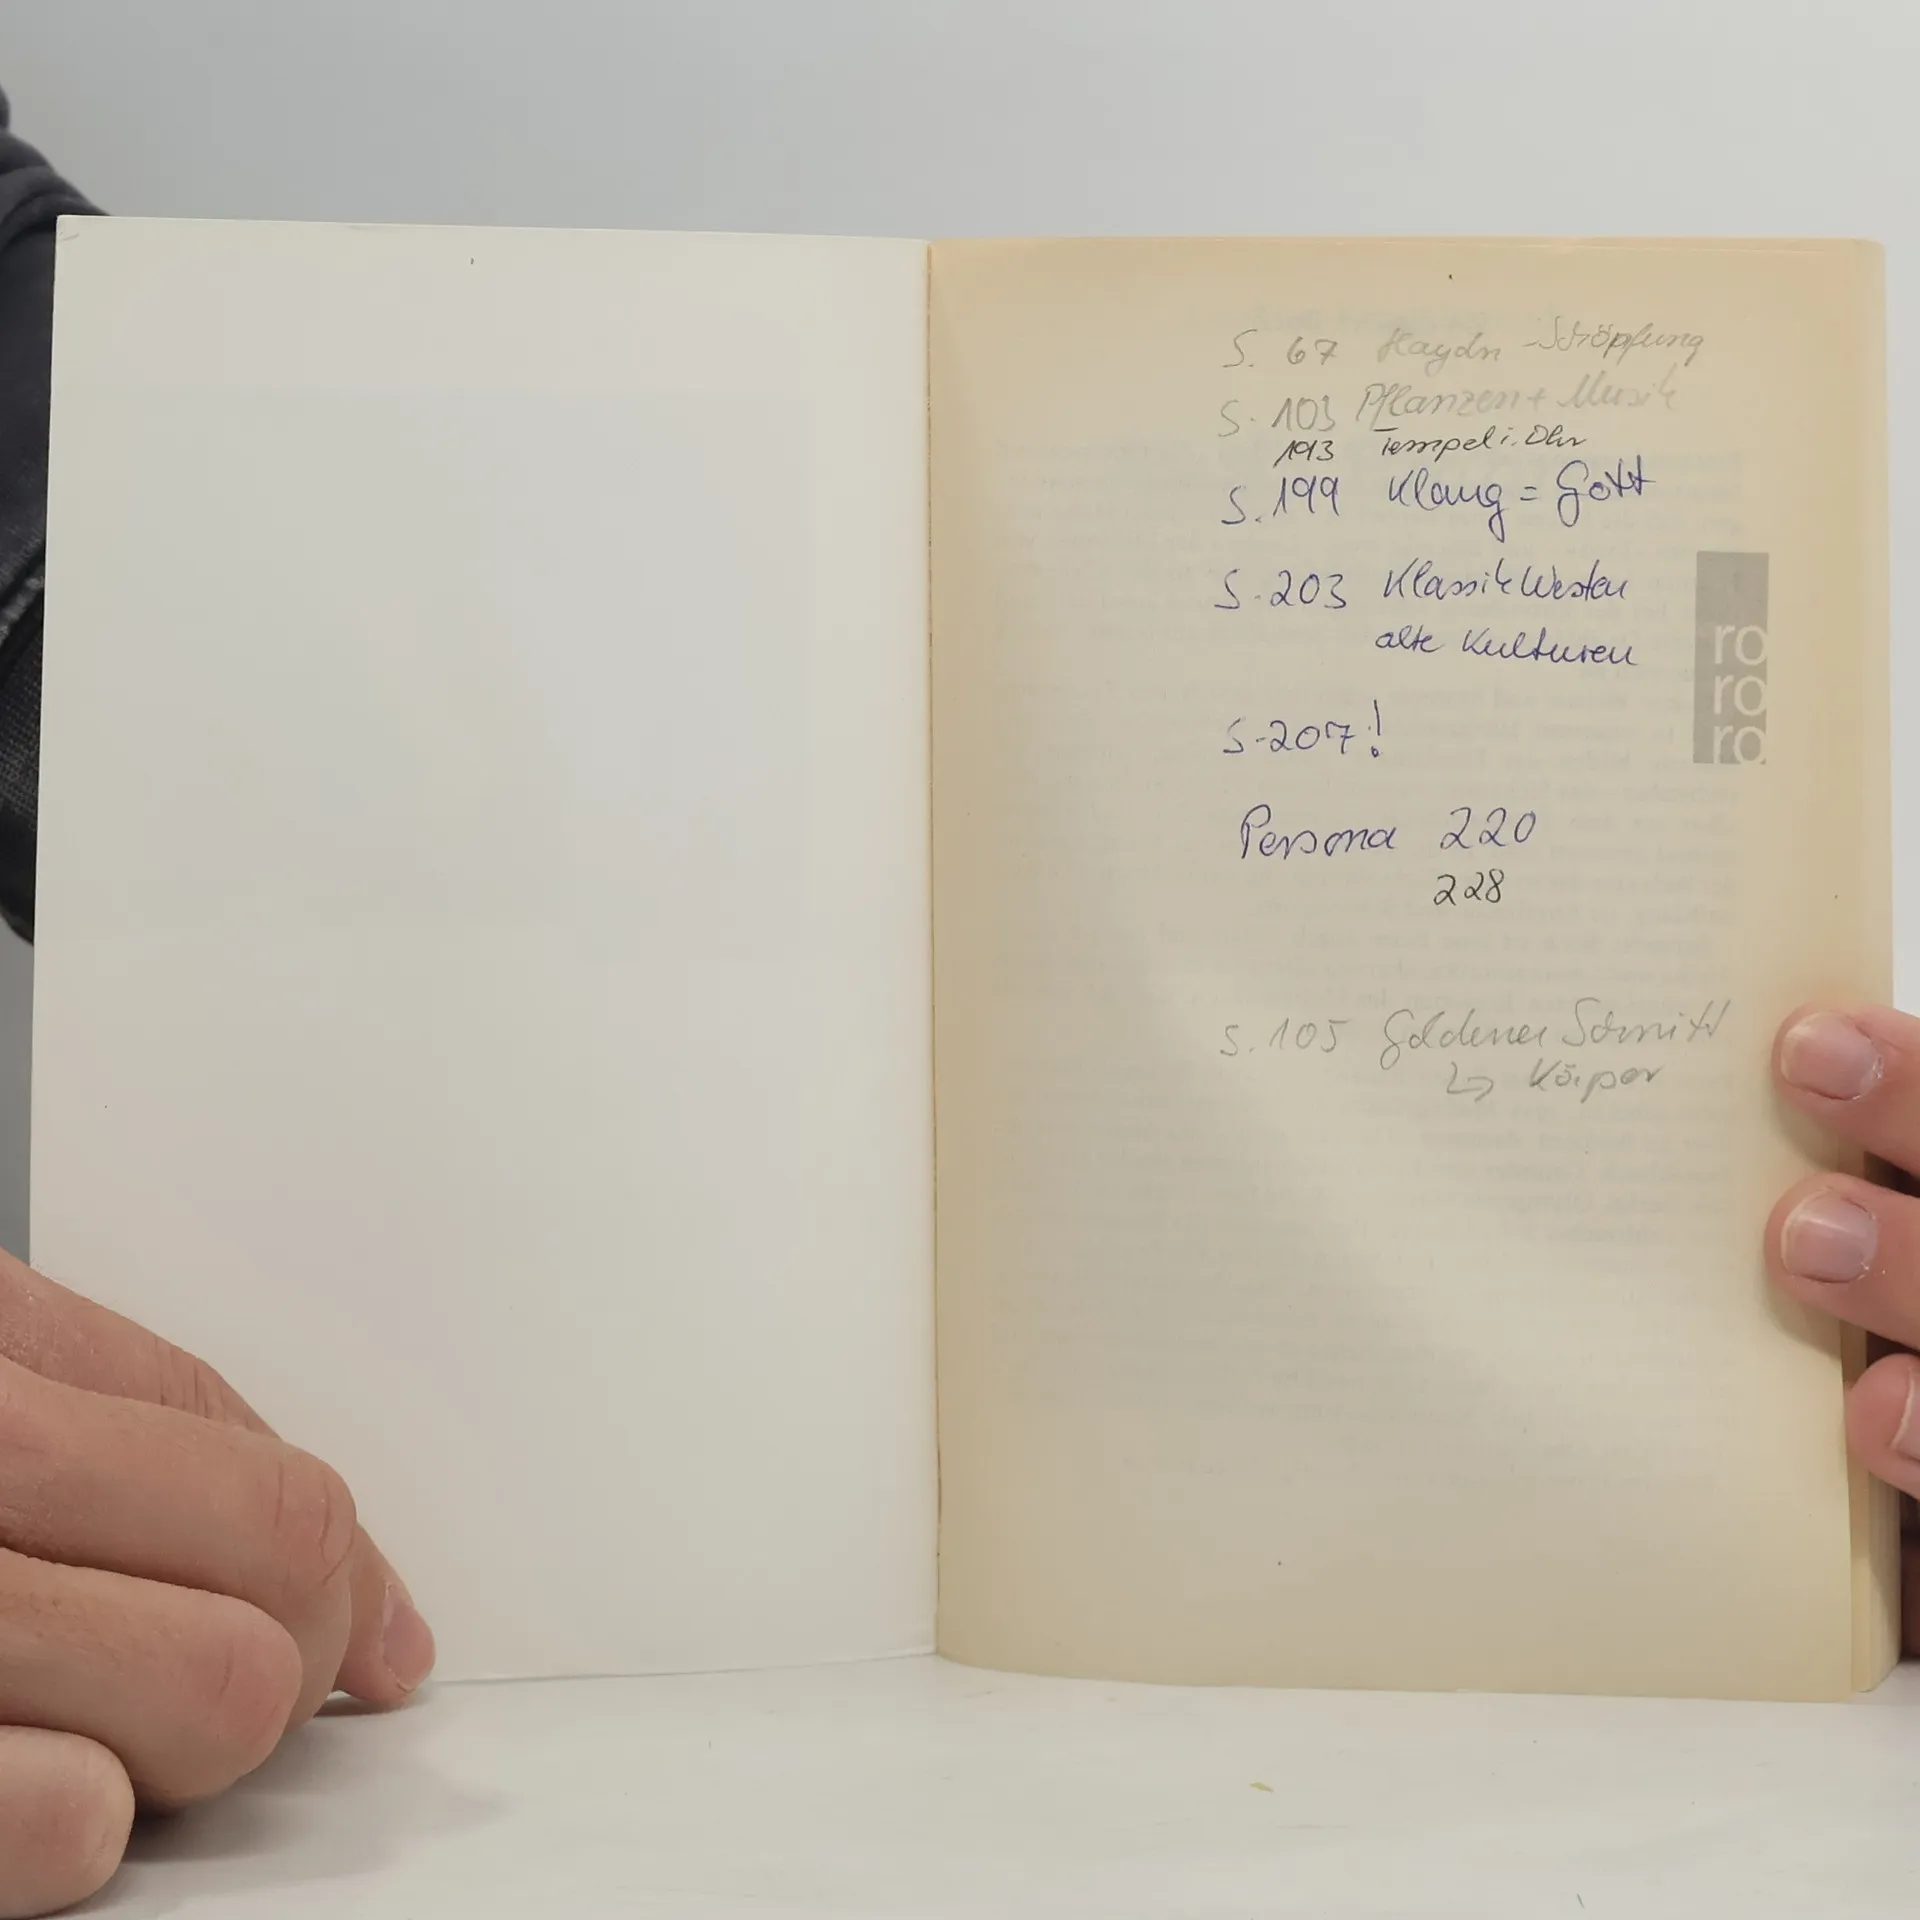 S. 67 Haydn - Schöpfung
S. 103 Pflanzen + Musik
193 Tempel i. Ohr
S. 199 Klang = Gott
S. 203 Klassik Westen
alte Kulturen
ro
ro
ro
S. 207!
Persona 220
228
S. 105 Goldener Schnitt
↳ Körper